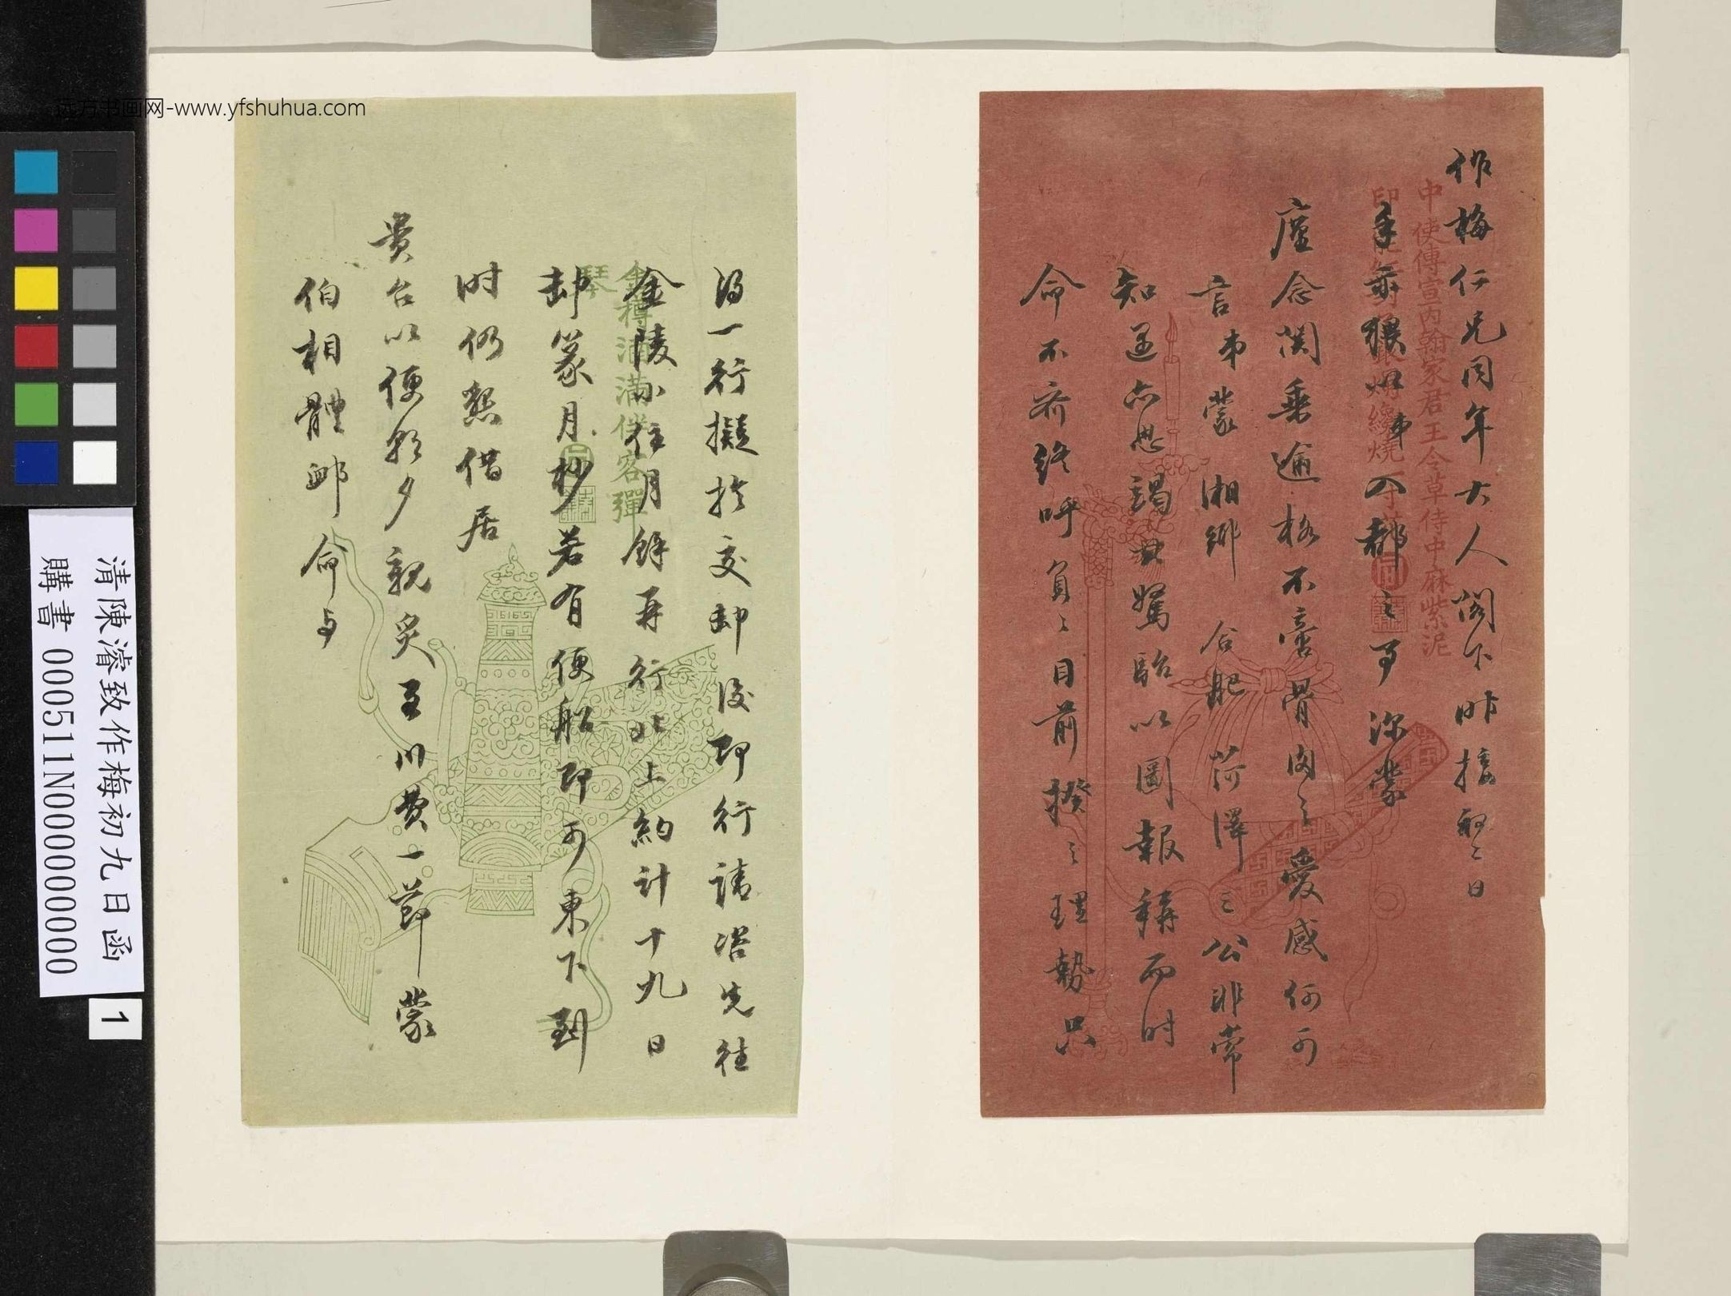 作梅仁兄同年大人閣下昨接初二日
手示猥以弟入都之事深蒙
廑念関垂逾格不啻骨肉之愛感何可
言弟蒙湘鄉合肥菏澤三公非常
知遇亦思竭其駑駘以圖報稱而时
命不齐終呼負負目前揆之理勢只
中使傳宣內翰家君王令草侍中麻紫泥
得一行擬於交卸後即行請咨先往
金陵小住月餘再行北上約計十九日
卸篆月杪若有便船即可東下到
时仍懇借居
貴台以便朝夕親炙至川費一節蒙
伯相體卹命與
金樽酒滿伴客彈
琴
清陳濬致作梅初九日函
購書 000511N000000000
1
远方书画网-www.yfshuhua.com